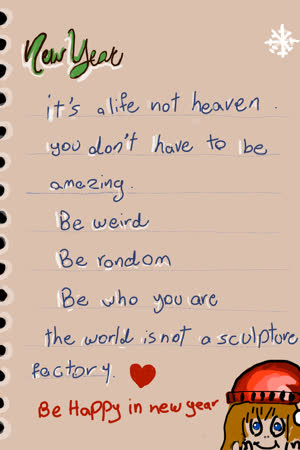 New Year
it's a life not heaven.
you don't have to be
amazing.
Be weird
Be random
Be who you are
the world is not a sculpture
factory.
Be Happy in new year